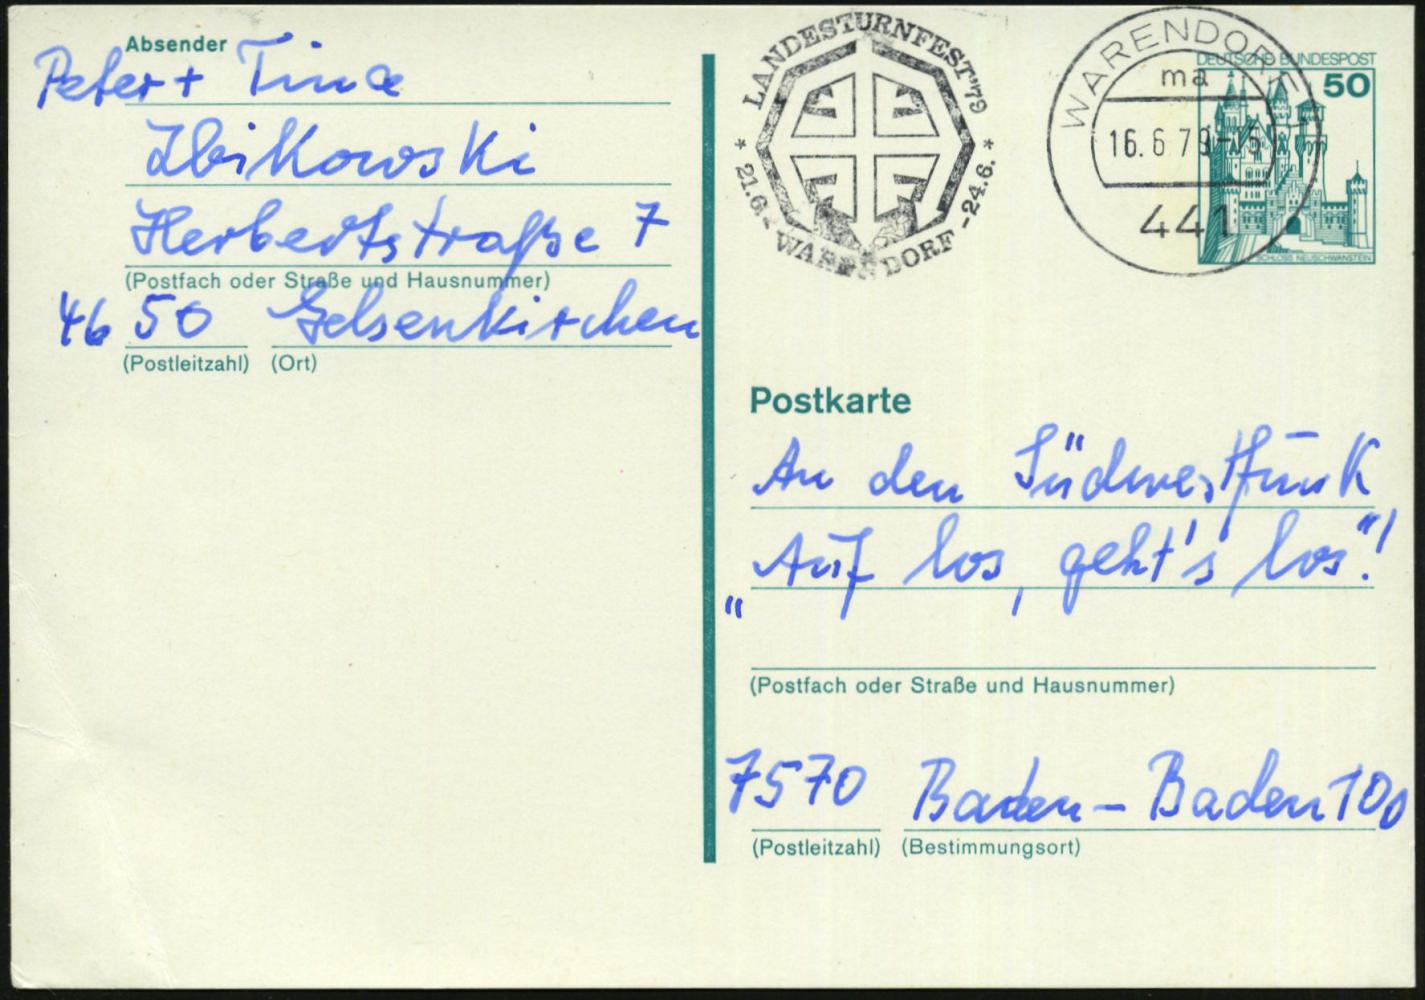 Absender
Peter + Tina
Zbikowski
Herbertstraße 7
(Postfach oder Straße und Hausnummer)
4650 Gelsenkirchen
(Postleitzahl) (Ort)
LANDESTURNFEST'79
* 21.6. - WARENDORF - 24.6. *
WARENDORF 1
ma
16.6.79-15
441
DEUTSCHE BUNDESPOST
50
SCHLOSS NEUSCHWANSTEIN
Postkarte
An den Südwestfunk
"Auf los, geht's los"!
(Postfach oder Straße und Hausnummer)
7570 Baden-Baden 100
(Postleitzahl) (Bestimmungsort)